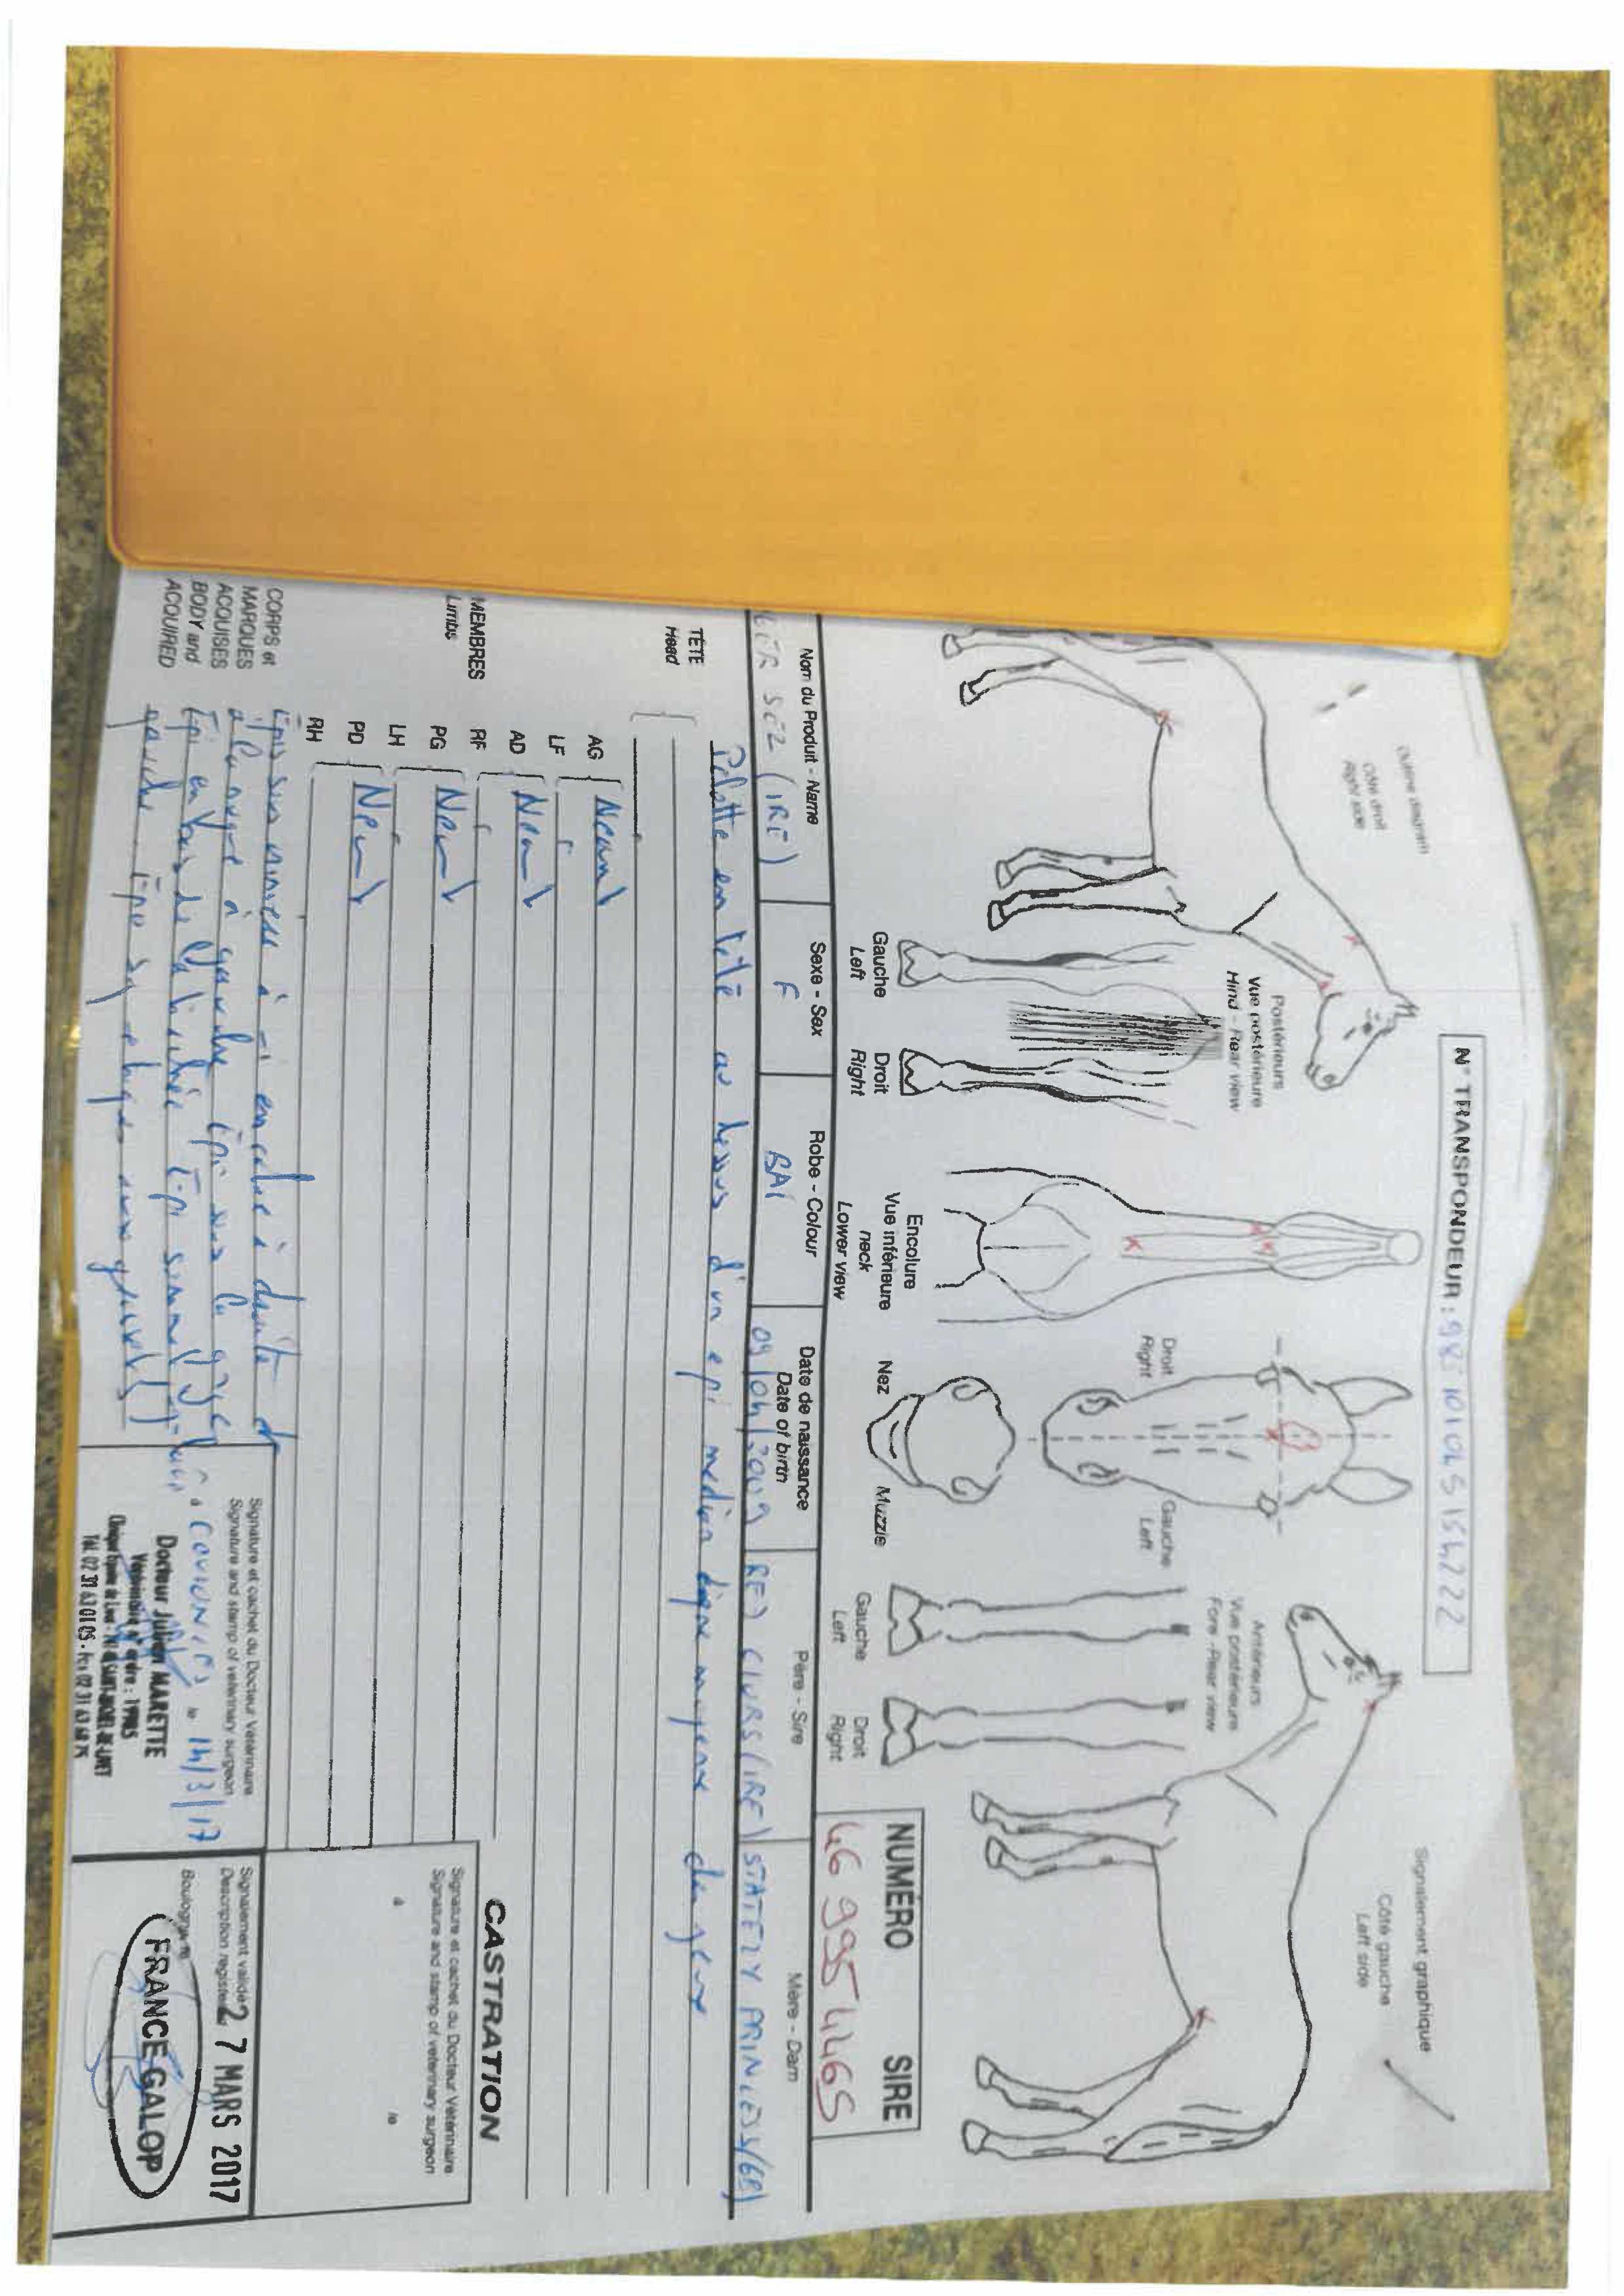 N° TRANSPONDEUR : 985101045154222
Outline diagram
Côté droit
Right side
Signalement graphique
Côté gauche
Left side
Postérieurs
Vue postérieure
Hind - Rear view
Gauche
Left
Droit
Right
Encolure
Vue inférieure
neck
Lower view
Droit
Right
Gauche
Left
Nez
Muzzle
Antérieurs
Vue postérieure
Fore - Rear view
Gauche
Left
Droit
Right
NUMÉRO SIRE
46 995 446S
Nom du Produit - Name
Sexe - Sex
Robe - Colour
Date de naissance
Date of birth
Père - Sire
Mère - Dam
SEZ (IRE)
F
BAI
09/04/2009
RED CLUBS (IRE)
STATELY PRINCESS (GB)
TÊTE
Head
Pelotte en tête au dessus d'un epi median ligne moyenne des yeux
MEMBRES
Limbs
AG Néant
LF
AD Néant
RF
PG Néant
LH
PD Néant
RH
CASTRATION
Signature et cachet du Docteur Vétérinaire
Signature and stamp of veterinary surgeon
à
le
CORPS et
MARQUES
ACQUISES
BODY and
ACQUIRED
à mi encolure à droite
à la nuque à gauche Epi sur la
Epi en bas de la
gauche
Signature et cachet du Docteur Vétérinaire
Signature and stamp of veterinary surgeon
le 14/3/17
Docteur Julien MARETTE
Vétérinaire n° ordre : 19985
Clinique Equine de Livet - 14140 SAINT-MICHEL-DE-LIVET
Tél. 02 31 63 01 05 - Fax 02 31 63 68 75
Signalement validé
Description registered
27 MARS 2017
Boulogne le
FRANCE GALOP